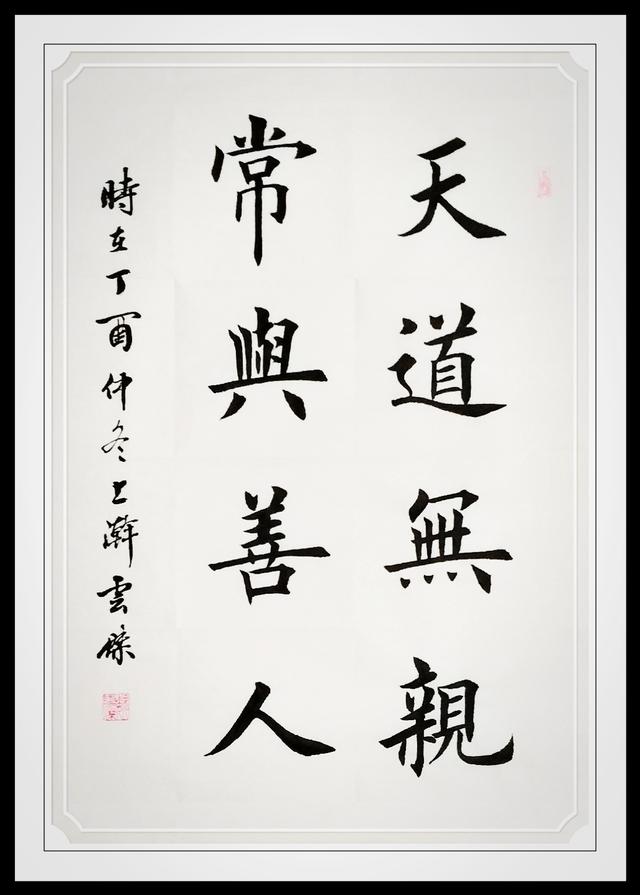 天道無親
常與善人
時在丁酉仲冬上澣雲傑